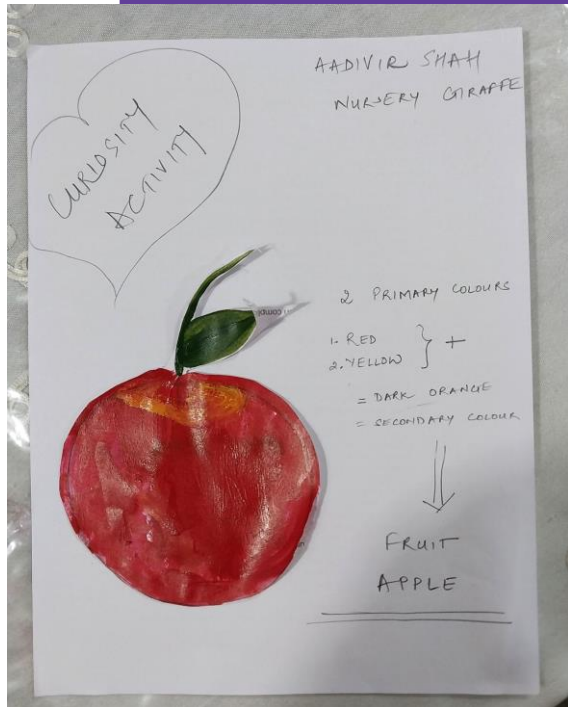 AADIVIR SHAH
NURSERY GIRAFFE
CURIOSITY
ACTIVITY
2 PRIMARY COLOURS
1. RED
2. YELLOW } +
= DARK ORANGE
= SECONDARY COLOUR
FRUIT
APPLE